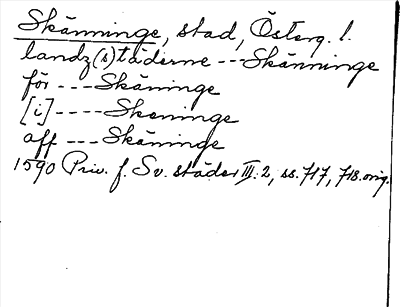 Skänninge, stad, Österg. l.
landz(s)täderne --- Skänninge
för --- Skäninge
[i] ---- Skeninge
aff --- Skäninge
1590 Priv. f. Sv. städer III:2, ss. 717, 718. orig.